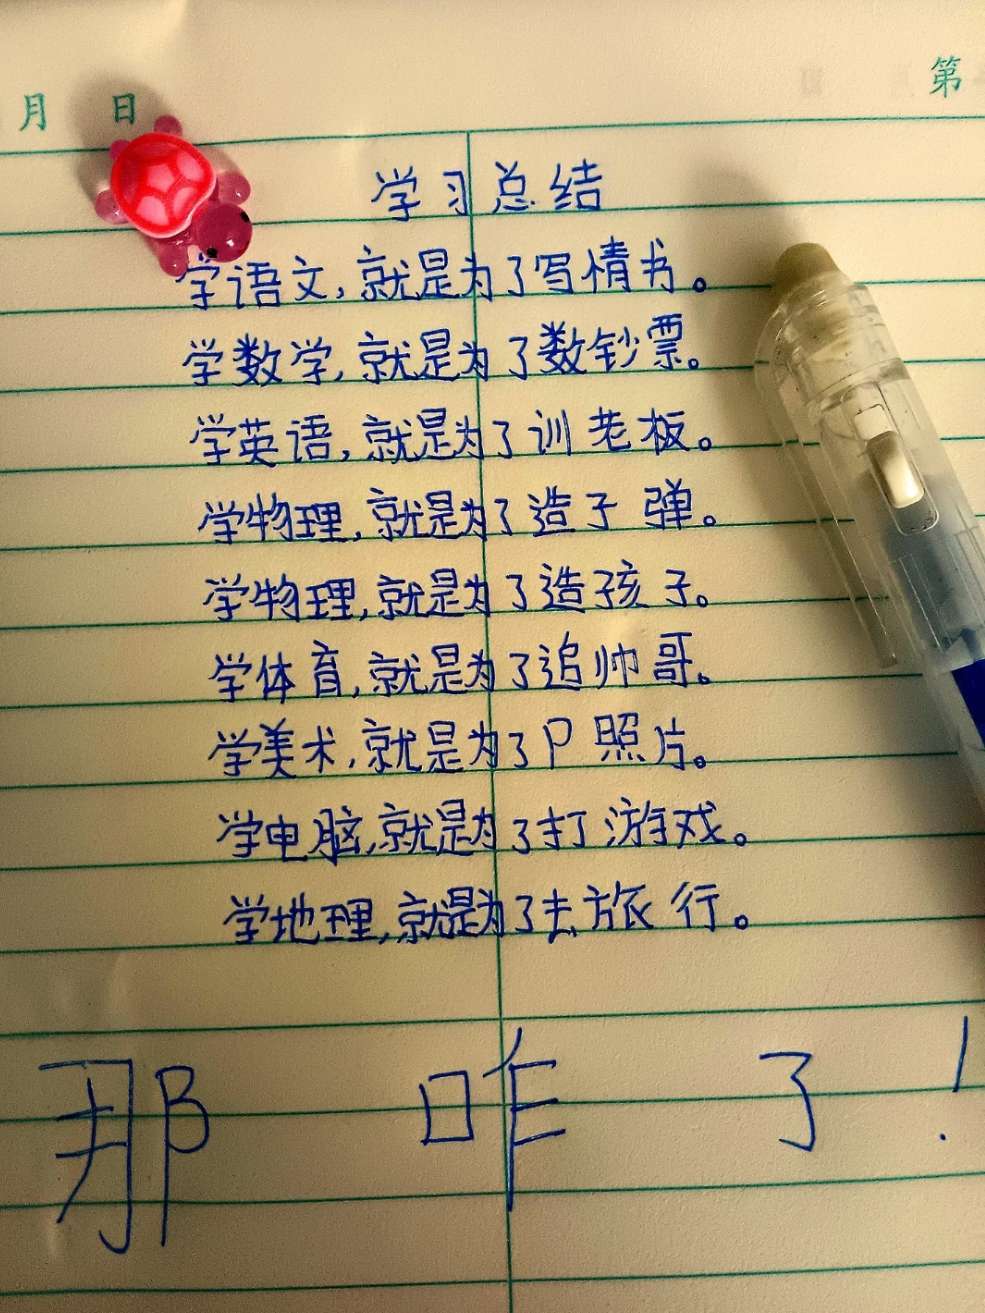 月 日 第
学习总结
学语文,就是为了写情书。
学数学,就是为了数钞票。
学英语,就是为了训老板。
学物理,就是为了造子弹。
学物理,就是为了造孩子。
学体育,就是为了追帅哥。
学美术,就是为了P照片。
学电脑,就是为了打游戏。
学地理,就是为了去旅行。
那咋了!